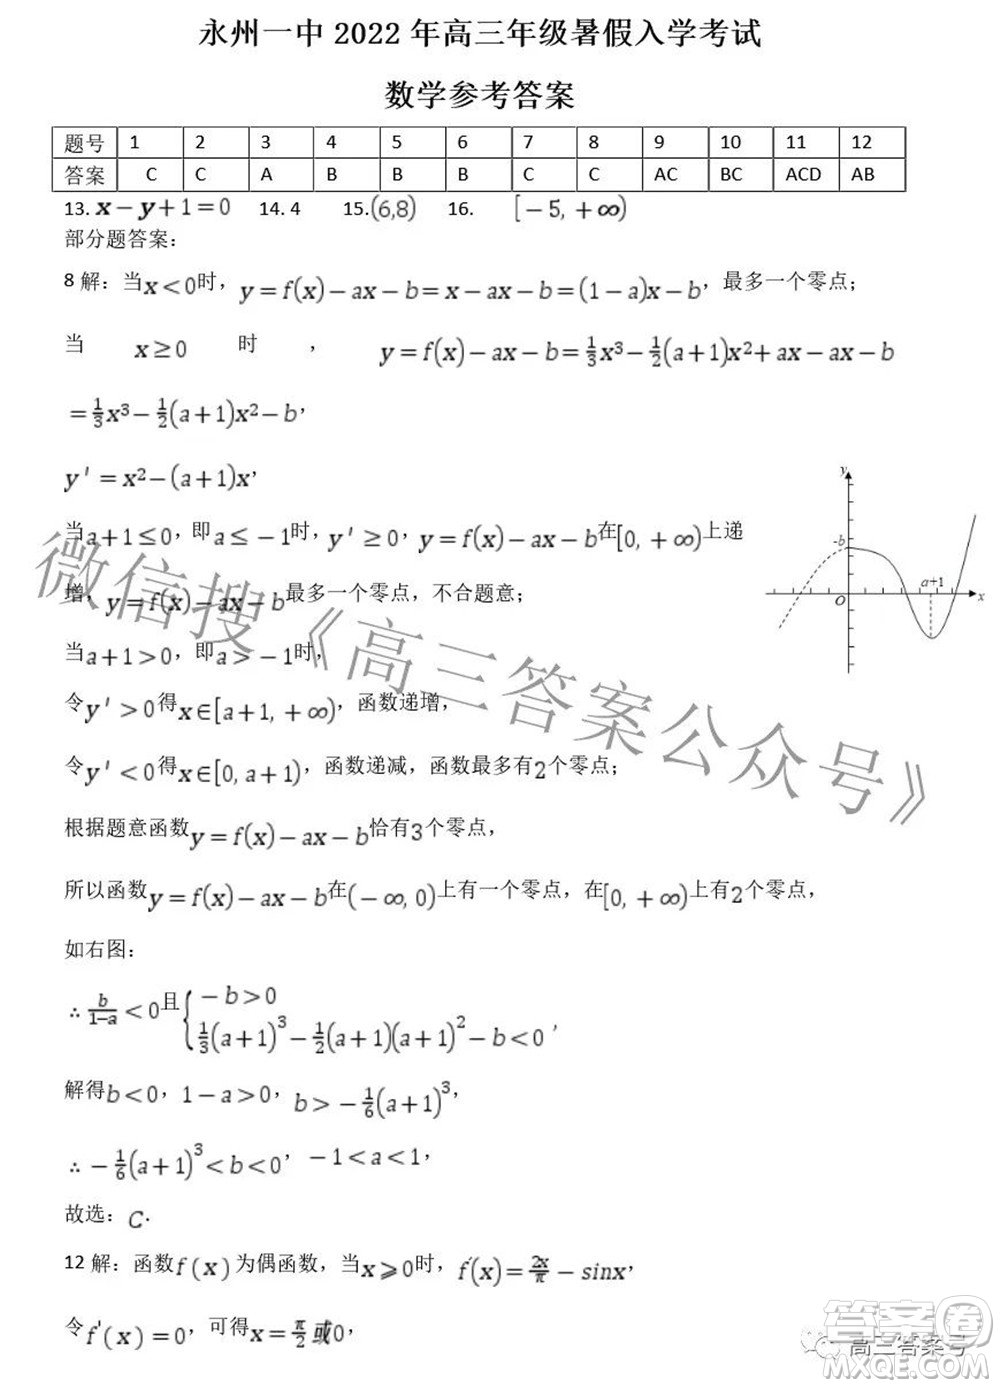 永州一中 2022 年高三年级暑假入学考试
数学参考答案
题号 1 2 3 4 5 6 7 8 9 10 11 12
答案 C C A B B B C C AC BC ACD AB
13. x－y＋1＝0 14. 4 15.(6,8) 16. [－5, ＋∞)
部分题答案：
8 解：当x＜0时，y＝f(x)－ax－b＝x－ax－b＝(1－a)x－b，最多一个零点；
当 x≥0 时 ， y＝f(x)－ax－b＝1/3 x³－1/2(a＋1)x²＋ax－ax－b
＝1/3 x³－1/2(a＋1)x²－b，
y′＝x²－(a＋1)x，
当a＋1≤0，即a≤－1时，y′≥0，y＝f(x)－ax－b在[0, ＋∞)上递
增，y＝f(x)－ax－b最多一个零点，不合题意；
当a＋1＞0，即a＞－1时，
令y′＞0得x∈[a＋1,＋∞)，函数递增，
令y′＜0得x∈[0, a＋1)，函数递减，函数最多有2个零点；
根据题意函数y＝f(x)－ax－b恰有3个零点，
所以函数y＝f(x)－ax－b在(－∞, 0)上有一个零点，在[0, ＋∞)上有2个零点，
如右图：
y
-b
a+1
O
x
∴ b/(1-a)＜0且{－b＞0
1/3(a＋1)³－1/2(a＋1)(a＋1)²－b＜0，
解得b＜0，1－a＞0，b＞－1/6(a＋1)³，
∴－1/6(a＋1)³＜b＜0，－1＜a＜1，
故选：C．
12 解：函数f(x)为偶函数，当x⩾0时，f′(x)＝2x/π－sinx，
令f′(x)＝0，可得x＝π/2或0，
微信搜《高三答案公众号》
高三答案号
答案圈
MXQE.COM